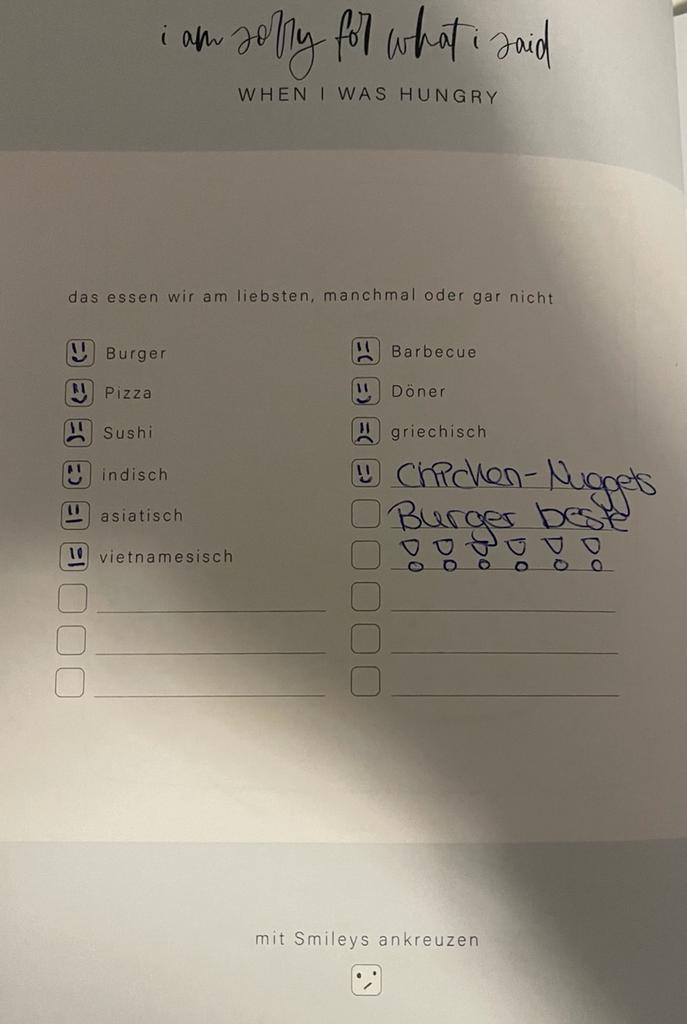 i am sorry for what i said
WHEN I WAS HUNGRY
das essen wir am liebsten, manchmal oder gar nicht
Burger
Pizza
Sushi
indisch
asiatisch
vietnamesisch
Barbecue
Döner
griechisch
Chicken-Nuggets
Burger beste
! ! ! ! ! !
mit Smileys ankreuzen